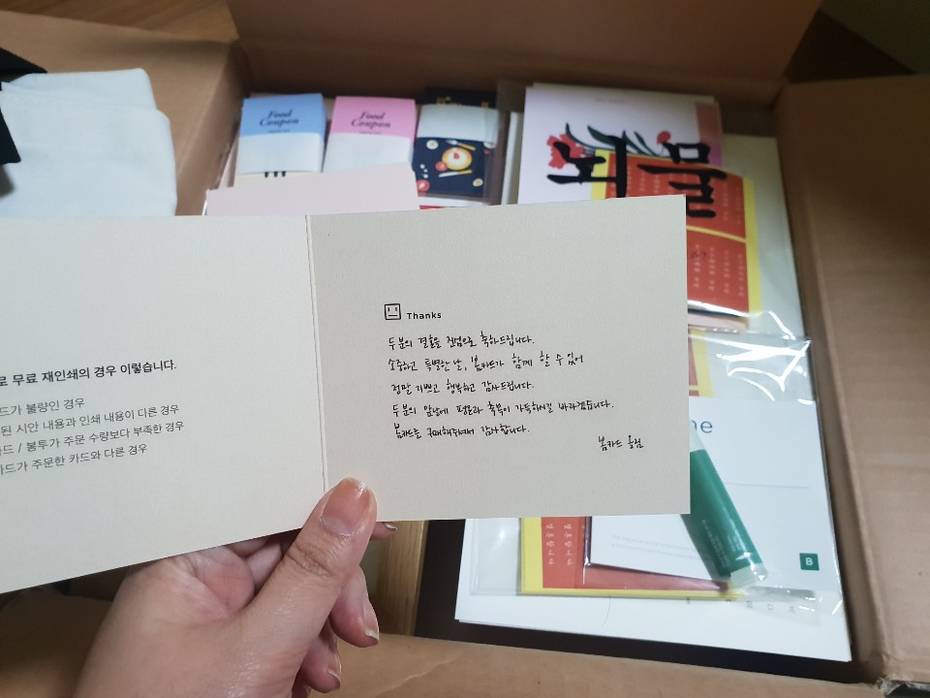 Food
Coupon
Food
Coupon
뇌물
로 무료 재인쇄의 경우 이렇습니다.
드가 불량인 경우
된 시안 내용과 인쇄 내용이 다른 경우
카드 / 봉투가 주문 수량보다 부족한 경우
카드가 주문한 카드와 다른 경우
Thanks
두분의 결혼을 진심으로 축하드립니다.
소중하고 특별한 날, 봄카드가 함께 할 수 있어
정말 기쁘고 행복하고 감사드립니다.
두분의 앞날에 평온과 축복이 가득하시길 바라겠습니다.
봄카드를 구매해주셔서 감사합니다.
봄카드 올림
me
B